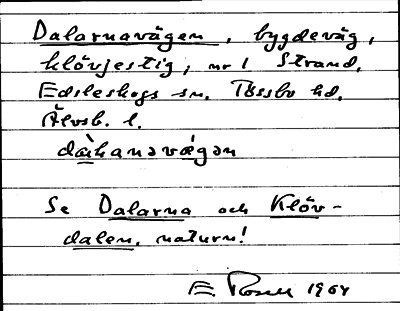 Dalarnavägen, bygdeväg,
klövjestig, nr 1 Strand,
Edsleskogs sn. Tössbo hd.
Älvsb. l.
Se Dalarna och Klöv-
dalen, naturn!
E. Rosell 1964